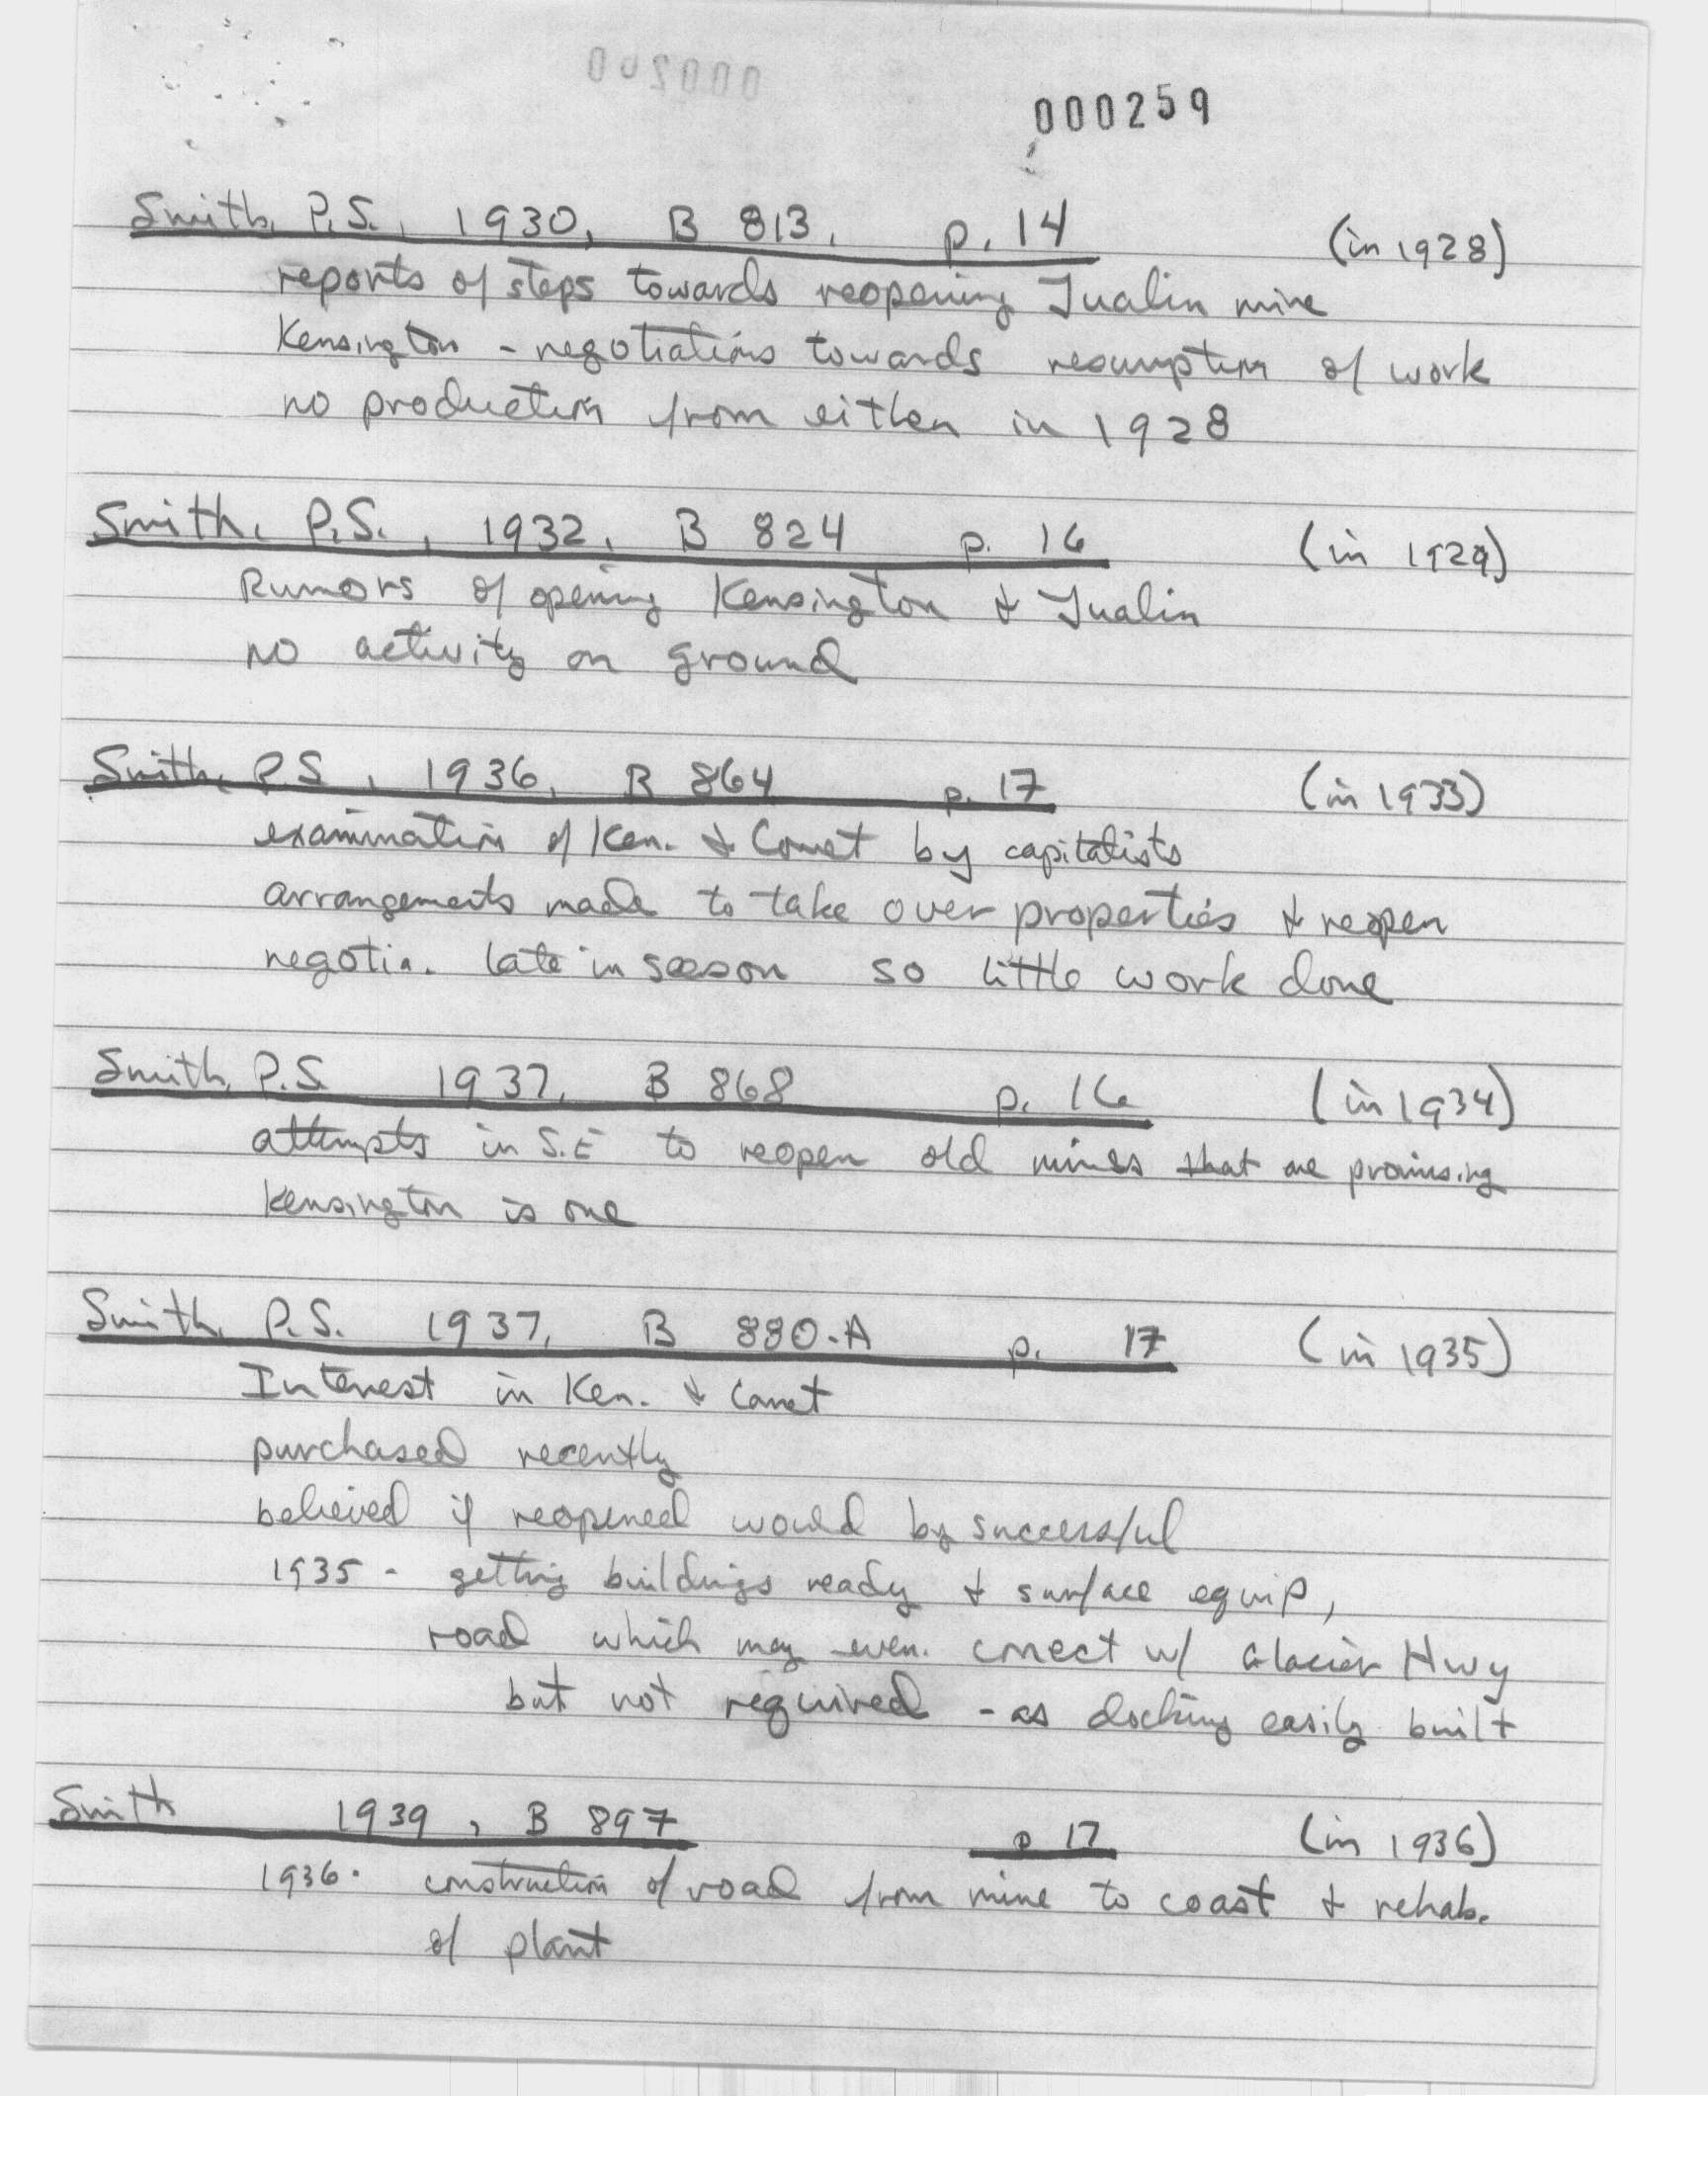 000259
Smith, P.S., 1930, B 813, p. 14 (in 1928)
reports of steps towards reopening Jualin mine
Kensington - negotiations towards resumption of work
no production from either in 1928
Smith, P.S., 1932, B 824 p. 16 (in 1929)
Rumors of opening Kensington & Jualin
no activity on ground
Smith, P.S., 1936, B 864 p. 17 (in 1933)
examination of Ken. & Comet by capitalists
arrangements made to take over properties & reopen
negotia. late in season so little work done
Smith, P.S. 1937, B 868 p. 16 (in 1934)
attempts in S.E to reopen old mines that are promising
Kensington is one
Smith, P.S. 1937, B 880-A p. 17 (in 1935)
Interest in Ken. & Comet
purchased recently
believed if reopened would by successful
1935 - getting buildings ready & surface equip,
road which may even. conect w/ Glacier Hwy
but not required - as docking easily built
Smith 1939, B 897 p 17 (in 1936)
1936. construction of road from mine to coast & rehab.
of plant